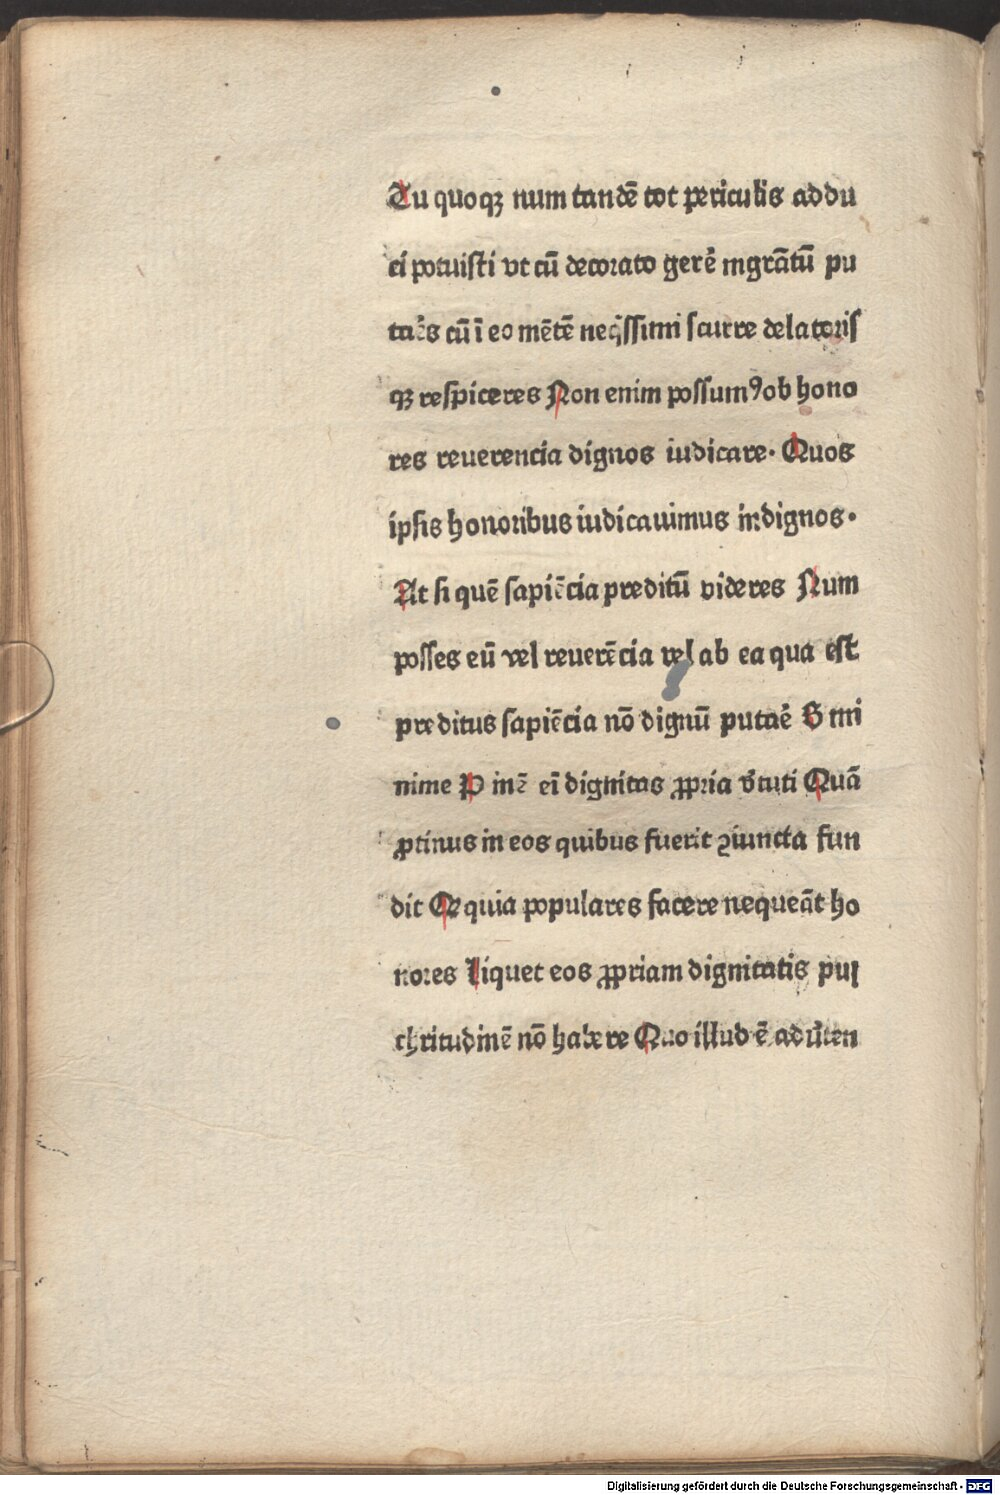 Tu quoqꝫ num tandē tot periculis addu
ci potuisti vt cū decorato gerē mgrātū pu
tarēs cū ī eo mētē neq̇ssimi scurre delatoris
qꝫ respiceres Non enim possumꝰ ob hono
res reuerencia dignos iudicare. Quos
ipsis honoribus iudicauimus indignos.
At si quē sapiēcia preditū videres Num
posses eū vel reuerēcia vel ab ea qua est
preditus sapiēcia nō dignū putaē S mi
nime P inē ei dignitas ꝓpria v̄tuti Quā
ꝓtinus in eos quibus fuerit ꝯiuncta fun
dit Q quia populares facere nequeāt ho
nores liquet eos ꝓpriam dignitatis pul
chritudinē nō habere Quo illud ē aduʼten
Digitalisierung gefördert durch die Deutsche Forschungsgemeinschaft - DFG